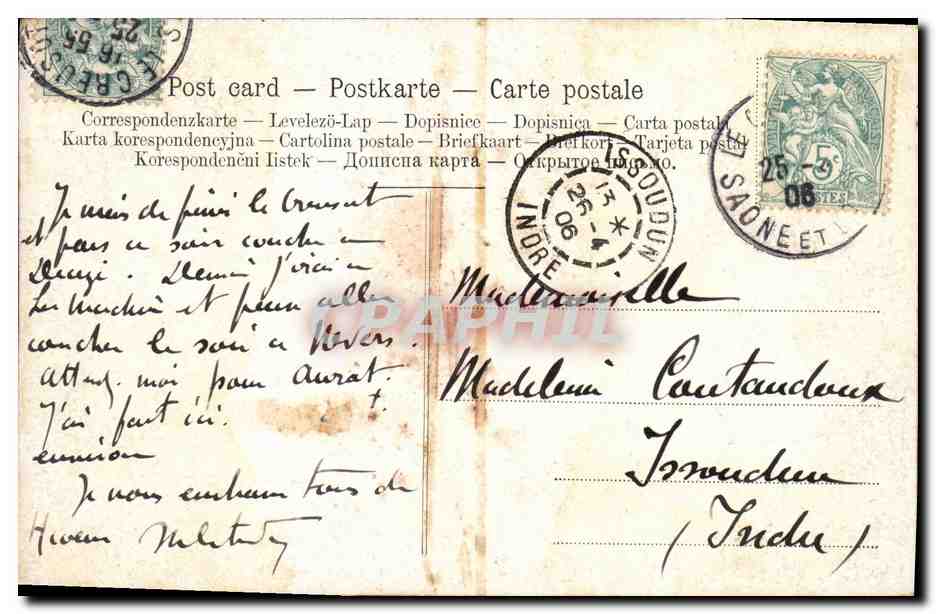 LE CREUSOT
S
16 55
25
Post card – Postkarte – Carte postale
Correspondenzkarte – Levelezö-Lap – Dopisnice – Dopisnica – Carta postală
Karta korespondencyjna – Cartolina postale – Briefkaart – Brefkort – Tarjeta postal
Korespondenčni listek – Дописна карта – Открытое письмо.
ISSOUDUN
INDRE
13 *
26 - 4
06
LE
25 - 4
06
SAONE ET L
5c
POSTES
CPAPHIL
Je viens de finir le Creusot
et pars ce soir coucher a
Decize. Demain j'irai a
La Machine et pour aller
coucher le soir a Nevers.
Attend. moi pour
J'ai fort ici.
environ
Je vous embrasse tous de
Mademoiselle
Madeleine Coutandoux
Issoudun
(Indre)